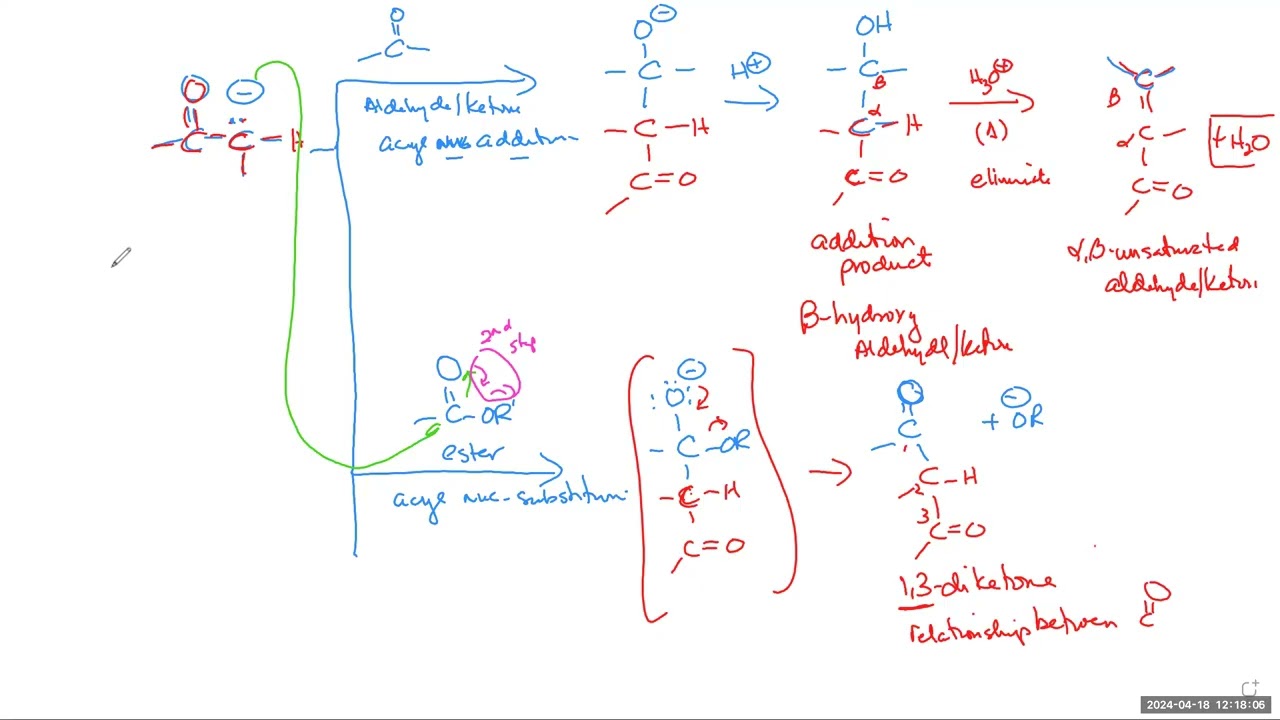 O
C
Aldehyde/ketone
acyl nuc addition
O ⊖
C C H
O ⊖
C
C-H
C=O
H⊕
OH
C
β
α
C-H
C=O
addition
product
β-hydroxy
Aldehyde/ketone
H3O⊕
(Δ)
C
β
α C
C=O
+ H2O
α,β-unsaturated
2nd
step
O
C-OR'
ester
acyl nuc-
⊖
:O:
C-OR
C-H
C=O
O
C
1
C-H
2
3
C=O
+ ⊖OR
1,3-diketone
relationship between
O
C
2024-04-18 12:18:06